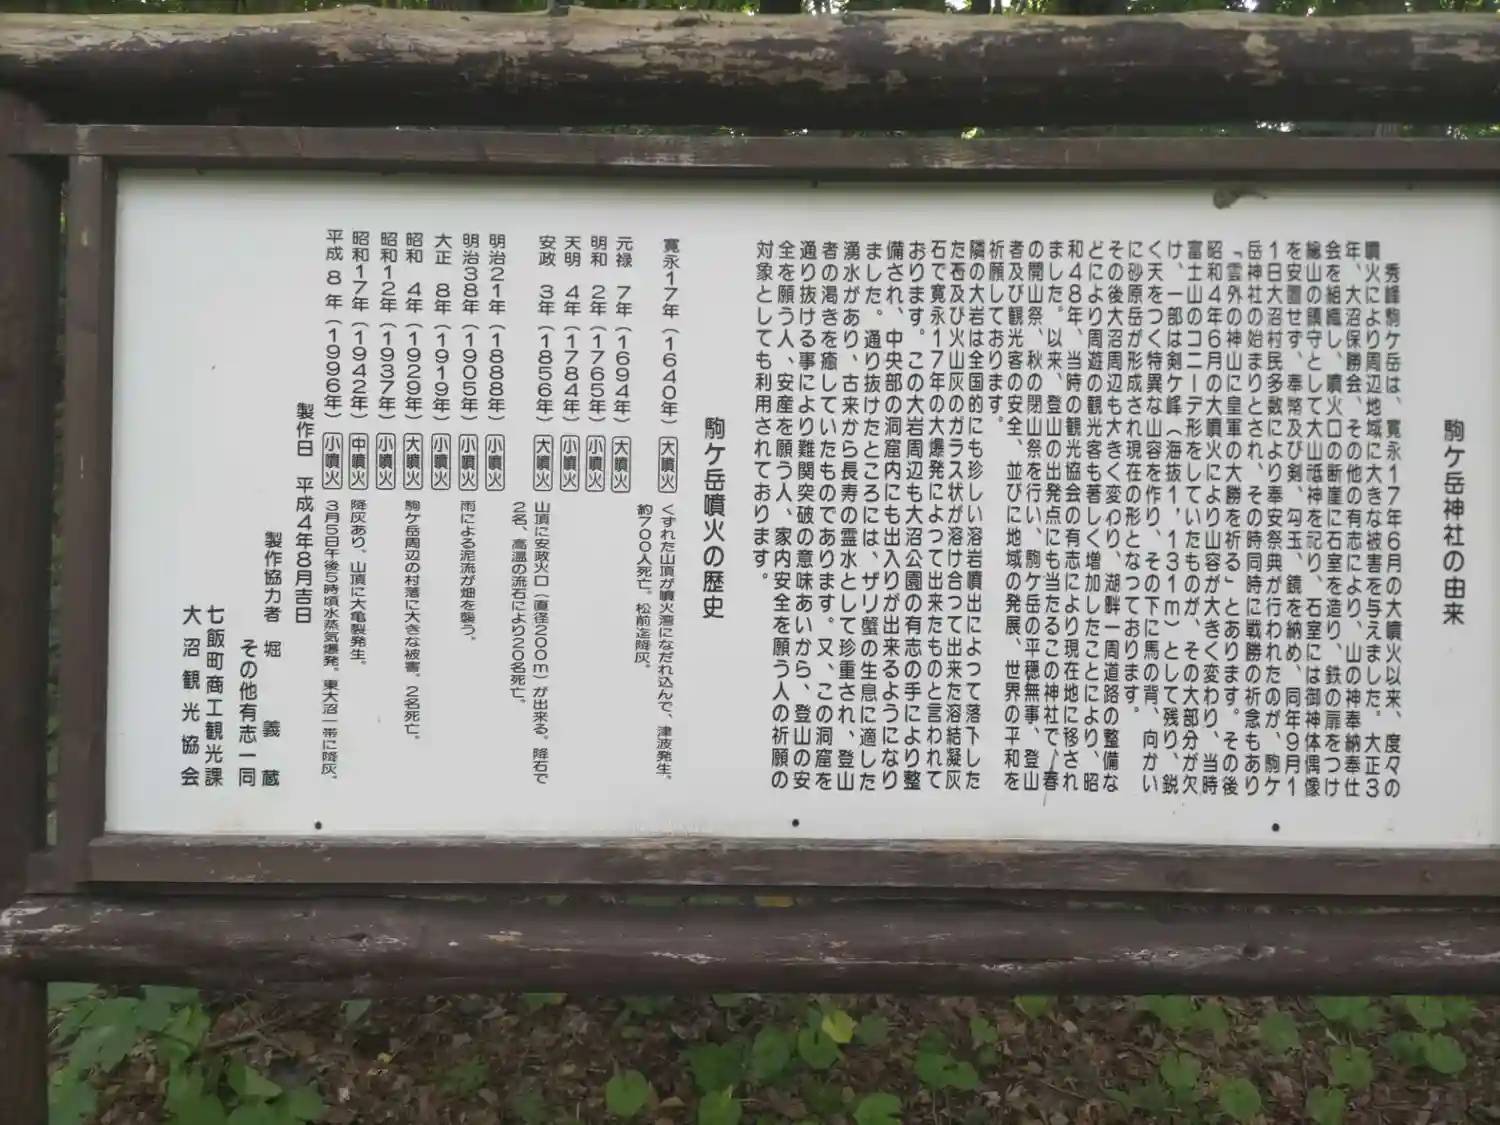 駒ケ岳神社の由来
秀峰駒ケ岳は、寛永17年6月の大噴火以来、度々の
噴火により周辺地域に大きな被害を与えました。大正3
年、大沼保勝会、その他の有志により、山の神奉納奉仕
会を組織し、噴火口の断崖に石室を造り、鉄の扉をつけ
繪山の鎮守として大山祗神を祀り、石室には御神体偶像
を安置せず、奉幣及び剣、勾玉、鏡を納め、同年9月1
1日大沼村民多数により奉安祭典が行われたのが、駒ケ
岳神社の始まりとされ、その時同時に戦勝の祈念もあり
「雲外の神山に皇軍の大勝を祈る」とあります。その後
昭和4年6月の大噴火により山容が大きく変わり、当時
富士山のコニーデ形をしていたものが、その大部分が欠
け、一部は剣ケ峰(海抜1,131m)として残り、鋭
く天をつく特異な山容を作り、その下に馬の背、向かい
に砂原岳が形成され現在の形となつております。
その後大沼周辺も大きく変わり、湖畔一周道路の整備な
どにより周遊の観光客も著しく増加したことにより、昭
和48年、当時の観光協会の有志により現在地に移され
ました。以来、登山の出発点にも当たるこの神社で、春
の開山祭、秋の閉山祭を行い、駒ケ岳の平穏無事、登山
者及び観光客の安全、並びに地域の発展、世界の平和を
祈願しております。
隣の大岩は全国的にも珍しい溶岩噴出によって落下した
た石及び火山灰のガラス状が溶け合つて出来た溶結凝灰
石で寛永17年の大爆発によつて出来たものと言われて
おります。この大岩周辺も大沼公園の有志の手により整
備され、中央部の洞窟内にも出入りが出来るようになり
ました。通り抜けたところには、ザリ蟹の生息に適した
湧水があり、古来から長寿の霊水として珍重され、登山
者の渇きを癒していたものであります。又、この洞窟を
通り抜ける事により難関突破の意味あいから、登山の安
全を願う人、安産を願う人、家内安全を願う人の祈願の
対象としても利用されております。
駒ケ岳噴火の歴史
寛永17年(1640年) 大噴火 くずれた山頂が噴火湾になだれ込んで、津波発生。
約700人死亡。松前迄降灰。
元禄 7年(1694年) 大噴火
明和 2年(1765年) 小噴火
天明 4年(1784年) 小噴火
安政 3年(1856年) 大噴火 山頂に安政火口(直径200m)が出来る。降石で
2名、高温の流石により20名死亡。
明治21年(1888年) 小噴火
明治38年(1905年) 小噴火 雨による泥流が畑を襲う。
大正 8年(1919年) 小噴火
昭和 4年(1929年) 大噴火 駒ケ岳周辺の村落に大きな被害。2名死亡。
昭和12年(1937年) 小噴火
昭和17年(1942年) 中噴火 降灰あり、山頂に大亀裂発生。
平成 8 年(1996年) 小噴火 3月5日午後5時頃水蒸気爆発。東大沼一帯に降灰。
製作日 平成4年8月吉日
製作協力者 堀 義 蔵
その他有志一同
七飯町商工観光課
大沼観光協会